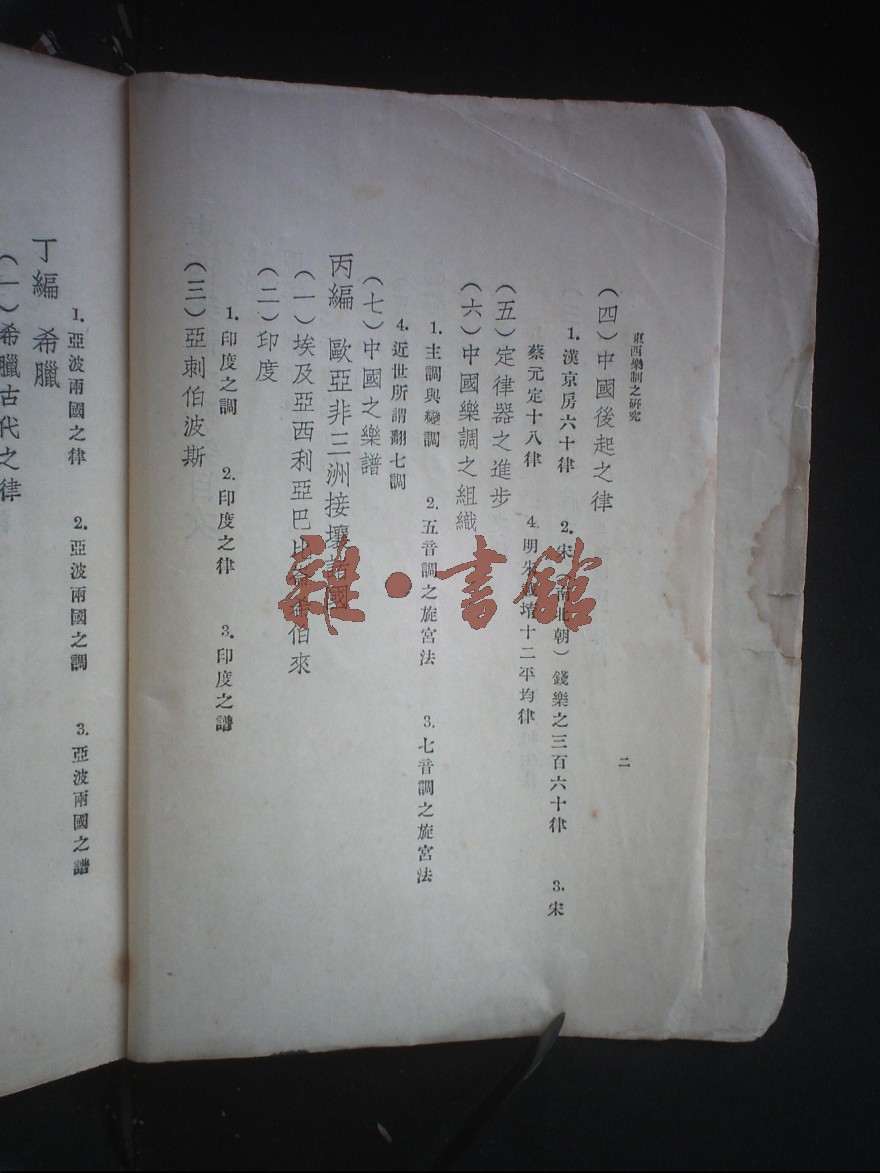 東西樂制之研究
二
（四）中國後起之律
1. 漢京房六十律　2. 宋（南北朝）錢樂之三百六十律　3. 宋
蔡元定十八律　4. 明朱載堉十二平均律
（五）定律器之進步
（六）中國樂調之組織
1. 主調與變調　2. 五音調之旋宮法　3. 七音調之旋宮法
4. 近世所謂翻七調
（七）中國之樂譜
丙編　歐亞非三洲接壤諸國
（一）埃及亞西利亞巴比倫希伯來
（二）印度
1. 印度之調　2. 印度之律　3. 印度之譜
（三）亞剌伯波斯
1. 亞波兩國之律　2. 亞波兩國之調　3. 亞波兩國之譜
丁編　希臘
（一）希臘古代之律
雜·書館